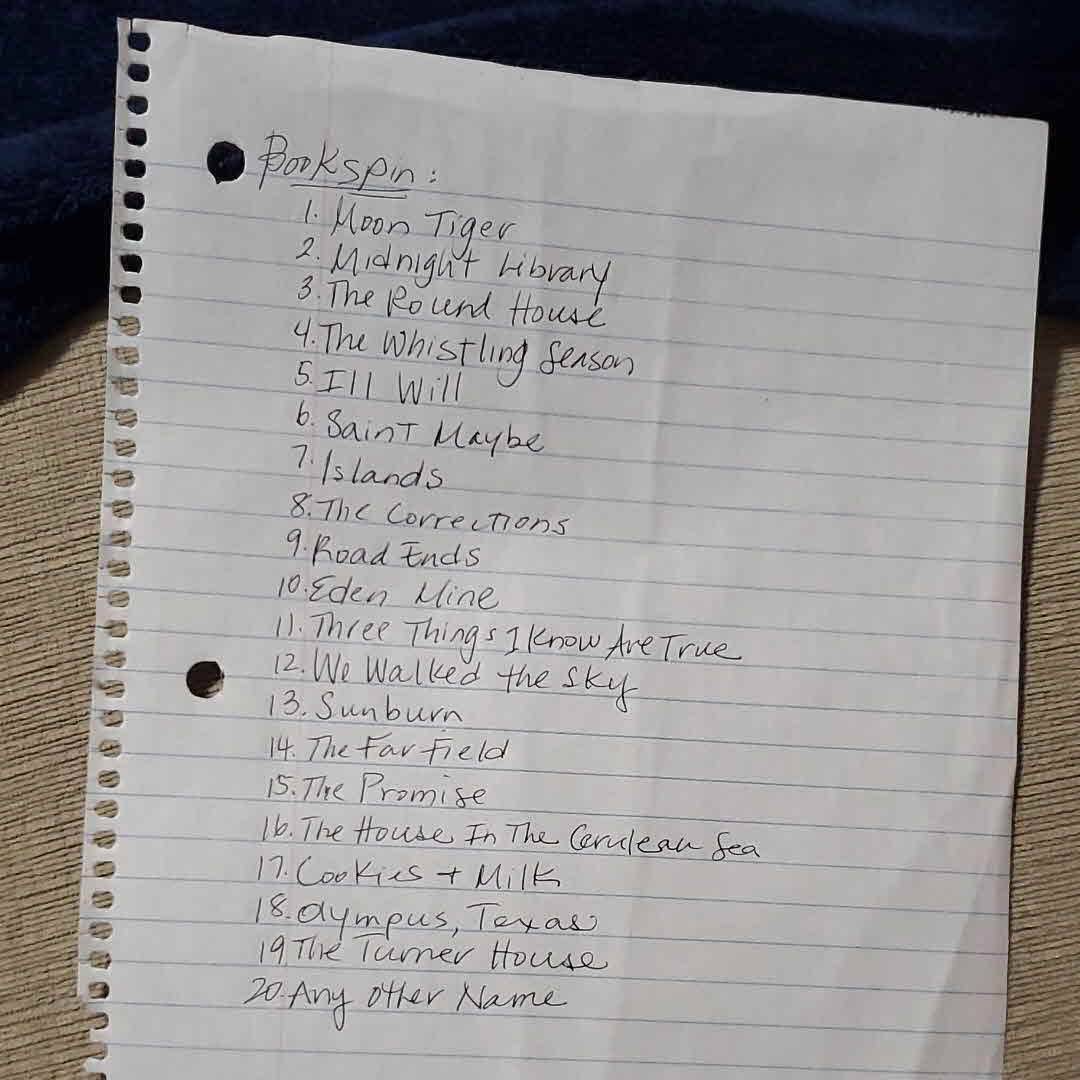 Bookspin:
1. Moon Tiger
2. Midnight Library
3. The Round House
4. The Whistling Season
5. Ill Will
6. Saint Maybe
7. Islands
8. The Corrections
9. Road Ends
10. Eden Mine
11. Three Things I Know Are True
12. We Walked the Sky
13. Sunburn
14. The Far Field
15. The Promise
16. The House In The Cerulean Sea
17. Cookies + Milk
18. Olympus, Texas
19 The Turner House
20. Any Other Name